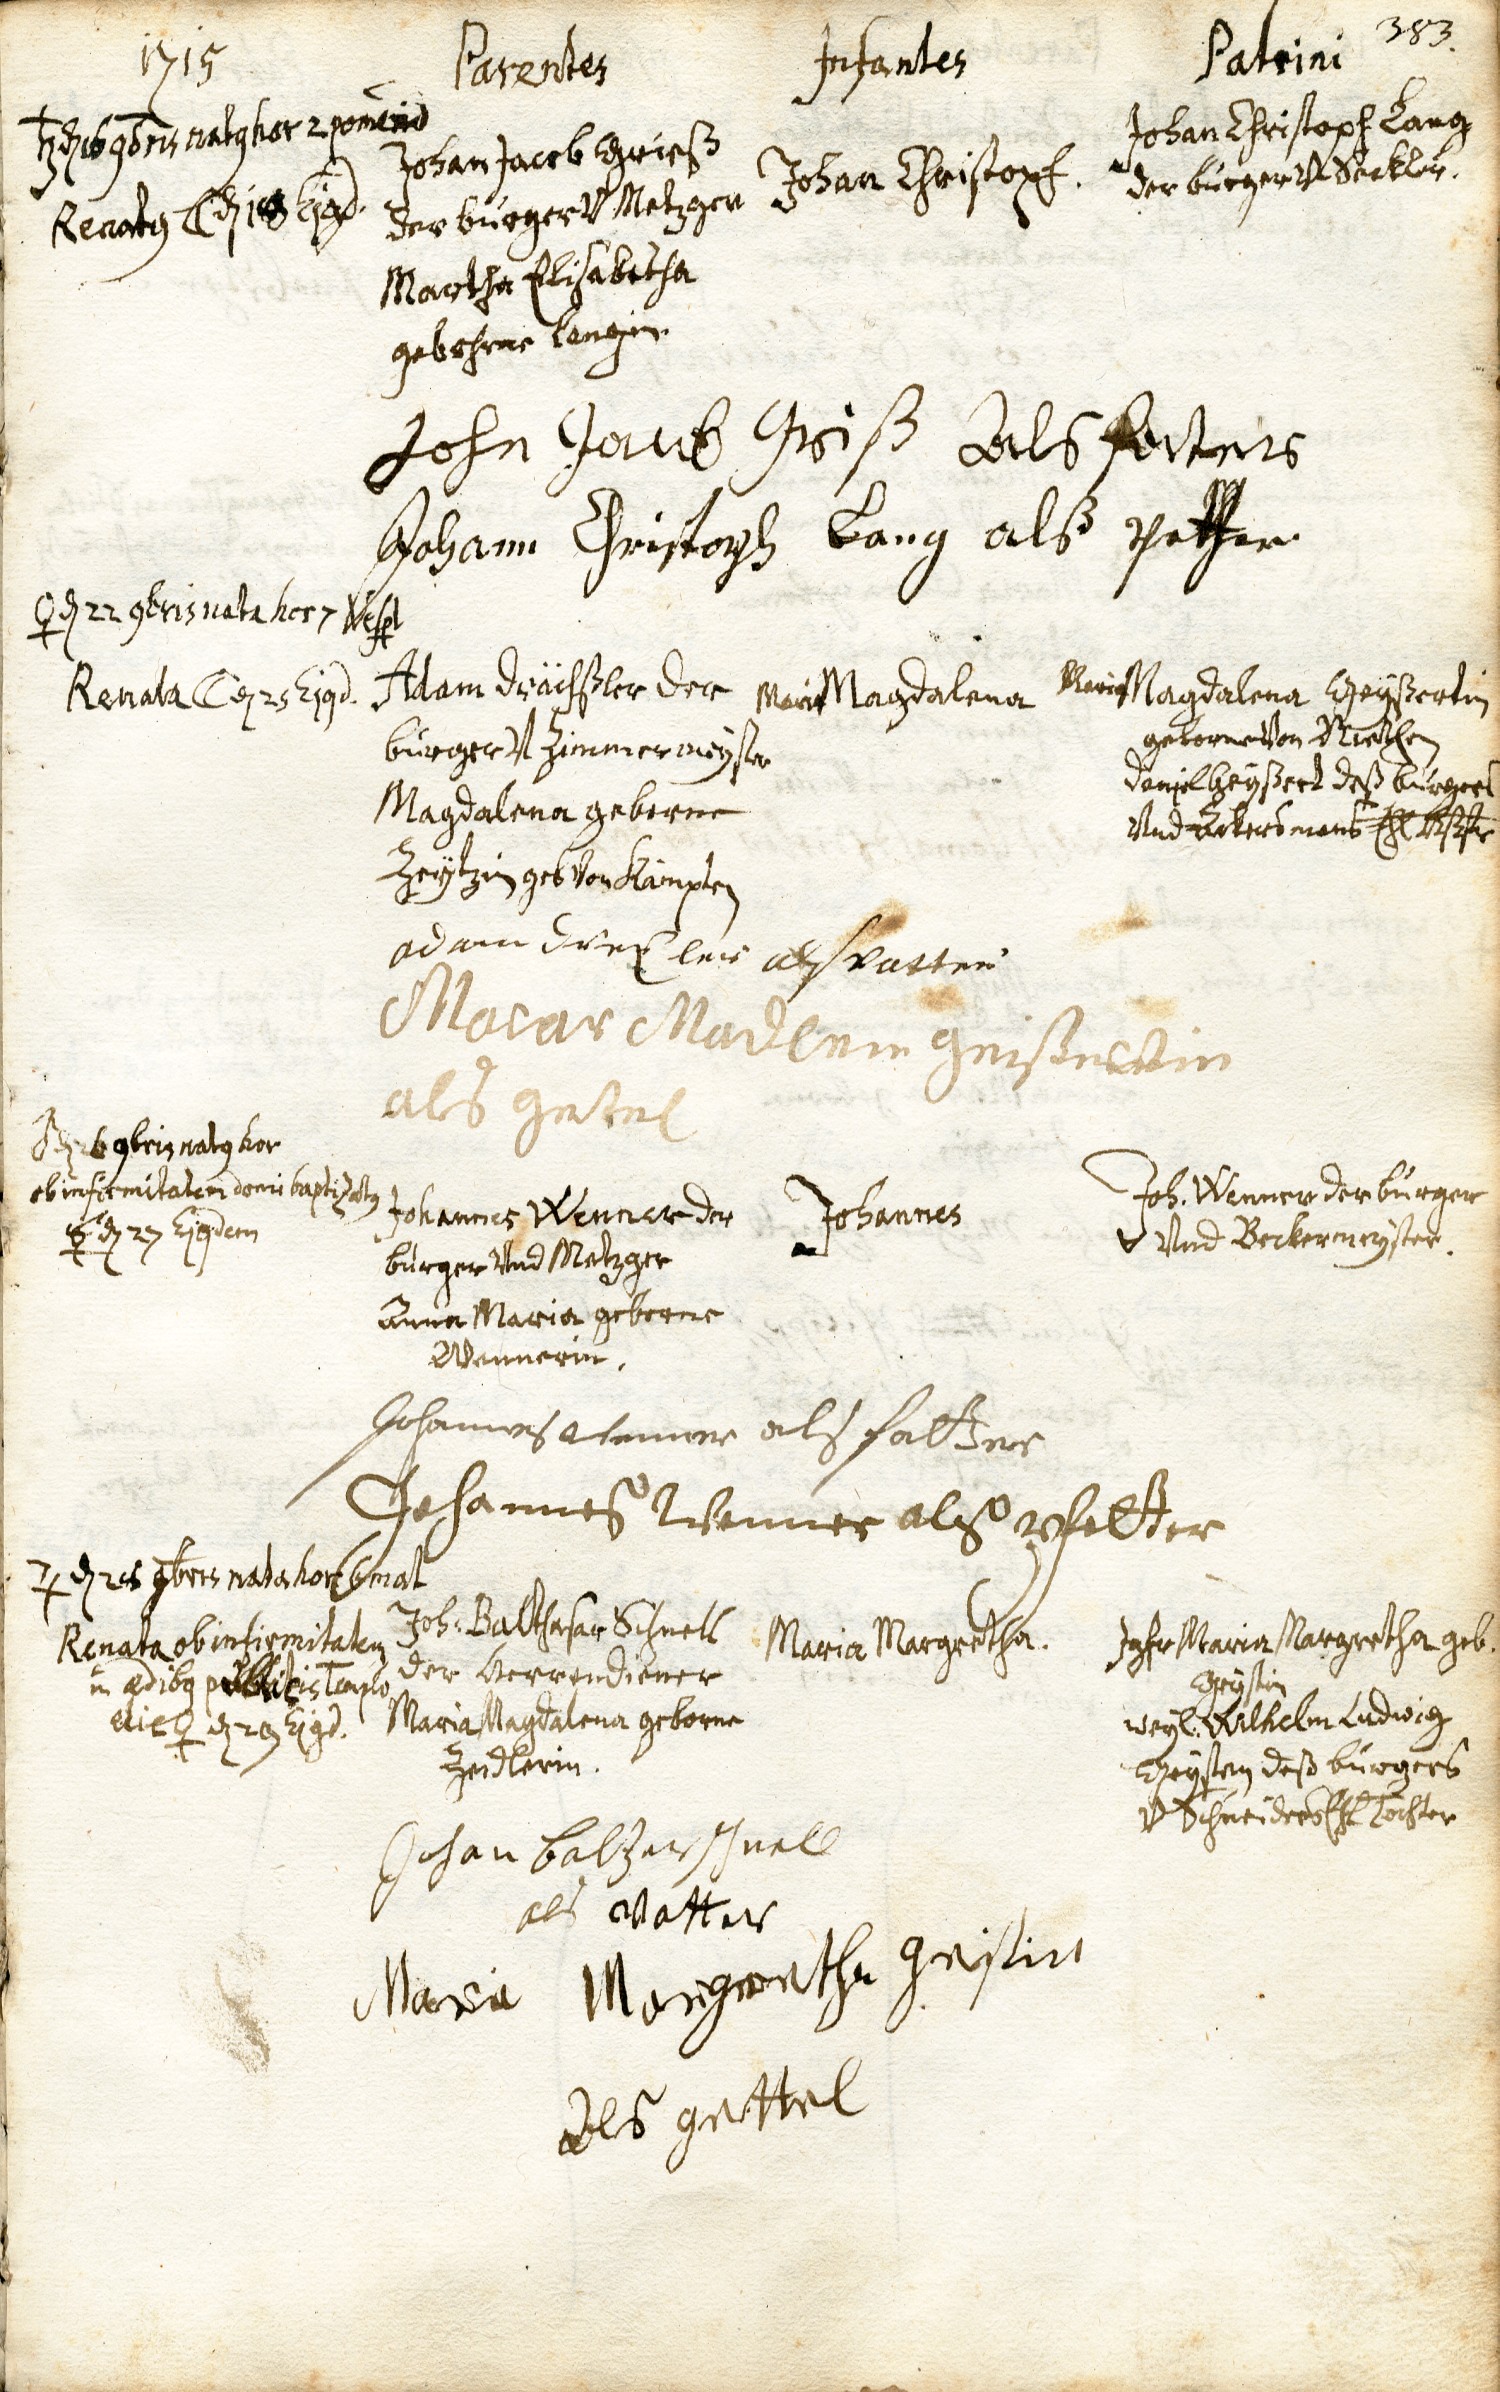 383.
1715 Parentes Infantes Patrini
♄ d 16 9bris natq hor 2 pomerid
Renatq ☾ d 18 Ejqd.
Johan Jacob Grieß
der burger V Metzger
Martha Elisabetha
gebohrne Langin
Johan Christopf.
Johan Christopf Lang
der burger V Seckler.
John Jacob Griß Als fatters
Johann Christoph Lang alß Petther
♀ d 22 9bris nata hor 7 Vesp
Renata ☾ d 25 Ejqd.
Adam Drächßler der
burger V Zimmermeyster
Magdalena geborne
Zeytzin geb von Kämpten
Maria Magdalena
Maria Magdalena Geyßertin
geborne von
Daniel Geyßert deß burgers
Vnd Ackersmans
adam drexler alß vatter
Madlena Geißertin
als Getel
♂ d 26 9bris natq hor
ob infirmitatem domi baptizatq
☿ d 27 Ejqdem
Johannes Wenner der
burger Vnd Metzger
Anna Maria geborne
Wennerin.
Johannes
Joh. Wenner der burger
Vnd Beckermeyster.
Johannes Wenner als fatter
Johannes Wenner alß pfetter
♃ d 28 9bris nata hor 6 mat
Renata ob infirmitatem
in ædibq publicis Templo
die ♀ d 29 Ejqd.
Joh. Balthasar Schnell
der Herrendiener
Maria Magdalena geborne
Zeidlerin.
Maria Margretha.
Jgfr Maria Margretha geb.
Geystin
weyl. Wilhelm Ludwig
Geysten deß burgers
V Schneiders Ehl Tochter
Johan Baltzer schnell
als Vatter
Maria Margaretha Geistin
Als gettel